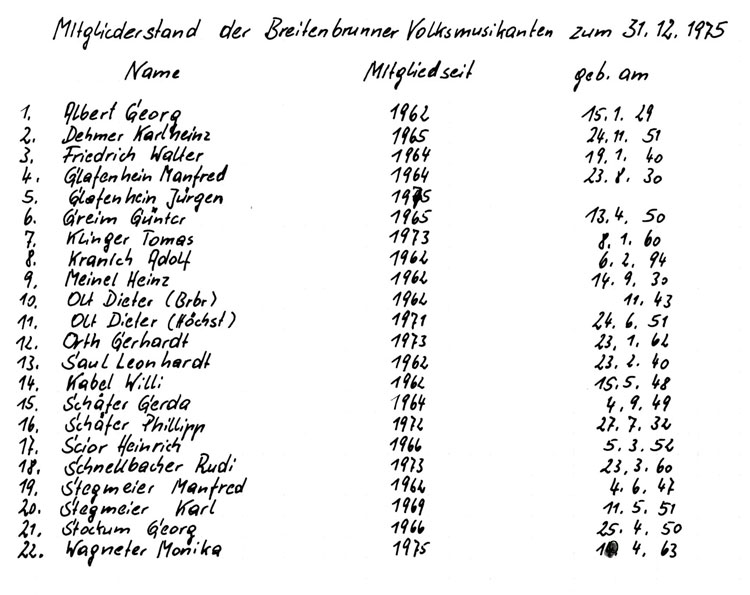 Mitgliederstand der Breitenbrunner Volksmusikanten zum 31.12.1975
Name Mitglied seit geb. am
1. Albert Georg 1962 15.1. 29
2. Dehmer Karlheinz 1965 24.11. 51
3. Friedrich Walter 1964 19.1. 40
4. Glafenhein Manfred 1964 23.8. 30
5. Glafenhein Jürgen 1975
6. Greim Günter 1965 13.4. 50
7. Klinger Tomas 1973 8.1. 60
8. Kranich Adolf 1962 6.2. 94
9. Meinel Heinz 1962 14.9. 30
10. Olt Dieter (Brbr) 1962 11. 43
11. Olt Dieter (Höchst) 1971 24.6. 51
12. Orth Gerhardt 1973 23.1. 62
13. Saul Leonhardt 1962 23.2. 40
14. Kabel Willi 1962 15.5. 48
15. Schäfer Gerda 1964 4.9. 49
16. Schäfer Phillipp 1972 27.7. 32
17. Scior Heinrich 1966 5.3. 52
18. Schnellbacher Rudi 1973 23.3. 60
19. Stegmeier Manfred 1962 4.6. 47
20. Stegmeier Karl 1969 11.5. 51
21. Stockum Georg 1966 25.4. 50
22. Wagneter Monika 1975 4. 63